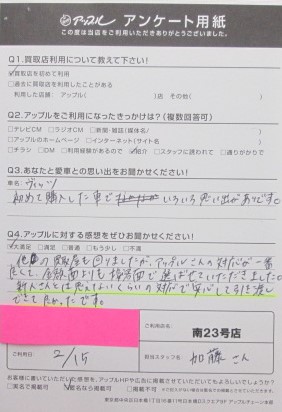 アップル アンケート用紙
この度は当店をご利用いただきありがとうございました。
Q1.買取店利用について教えて下さい!
☑買取店を初めて利用
□過去に買取店を利用したことがある
利用した店舗： アップル( )店 その他( )
Q2.アップルをご利用になったきっかけは？(複数回答可)
□テレビCM □ラジオCM □新聞・雑誌(媒体名/ )
□アップルのホームページ □インターネット(サイト名 )
□チラシ □DM □利用経験があるので ☑紹介 □スタッフに誘われて □通りがかりで
Q3.あなたと愛車との思い出をお聞かせください!
車名：ヴィッツ
初めて購入した車で いろいろ思い出があります。
Q4.アップルに対する感想をぜひお聞かせください!
☑大満足 □満足 □普通 □もう少し □不満
他の買取店も回りましたが、アップルさんの対応が一番
良くて、金額面よりも接客面で選ばせていただきました。
新人さんとは思えないくらいの対応で安心して引き渡し
できてよかったです。
ご利用店名
南23号店
ご利用日 2/15
担当スタッフ名 加藤さん
お客様に書いていただいた感想を、アップルHPや広告に掲載させていただいてもよろしいでしょうか?
□実名で掲載可 ☑匿名なら掲載可 □掲載不可